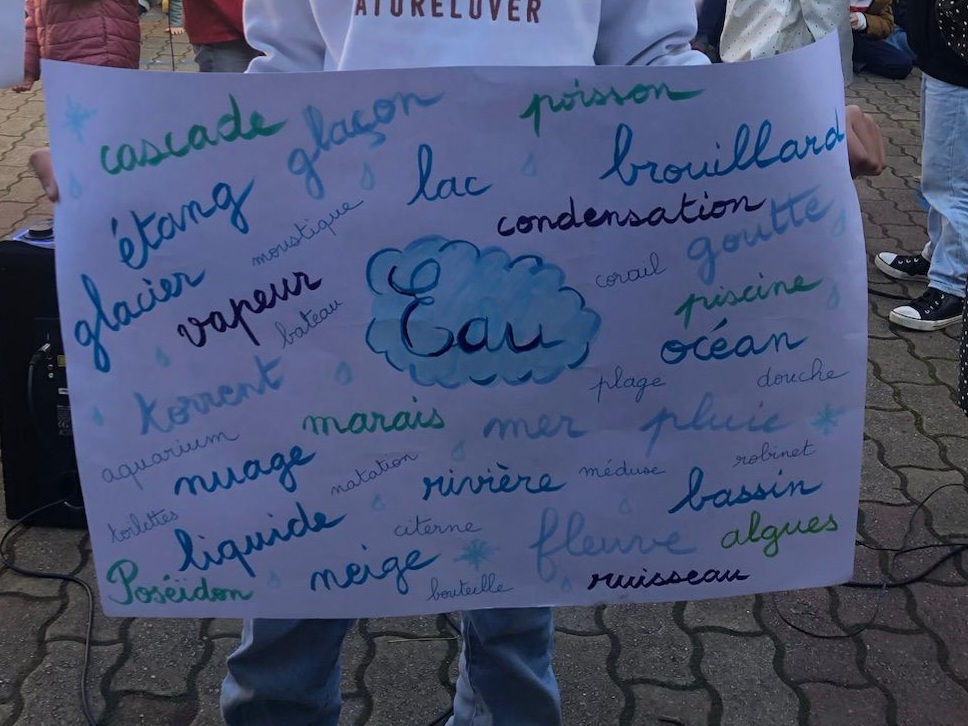 ATURELOVER
cascade glaçon poisson
étang lac brouillard
moustique condensation
glacier vapeur corail goutte
bateau Eau piscine
océan
torrent plage douche
marais mer pluie
aquarium nuage natation rivière méduse robinet
bassin
toilettes liquide citerne fleuve algues
Poséïdon neige bouteille ruisseau